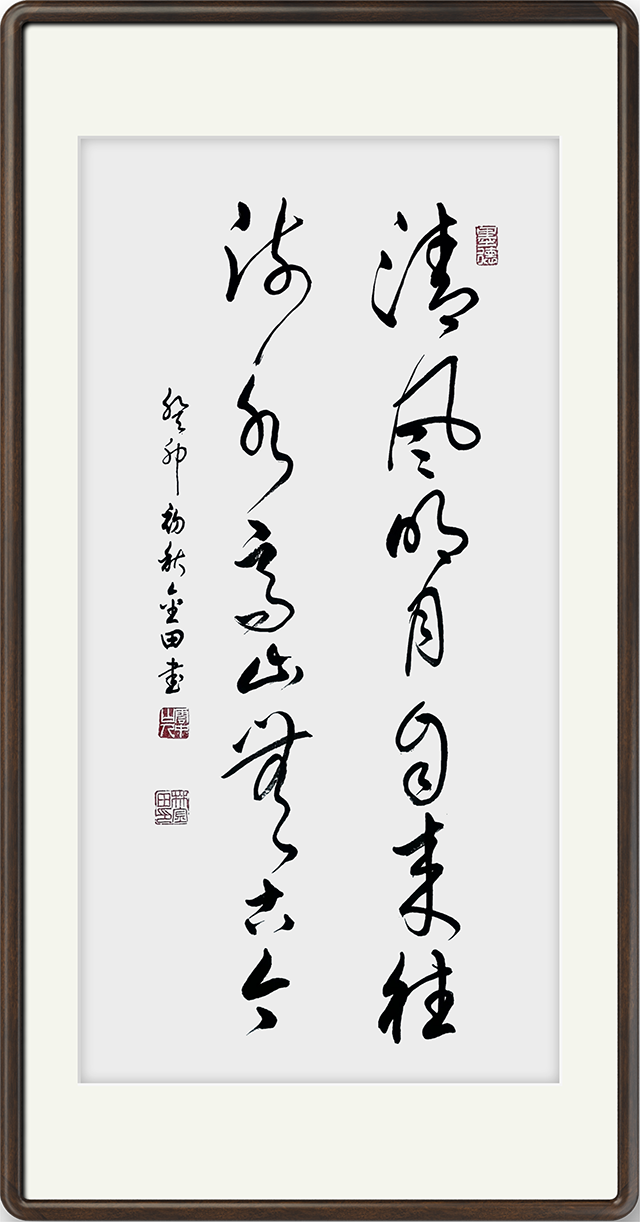 清风明月自来往
流水高山无古今
癸卯初秋金田书